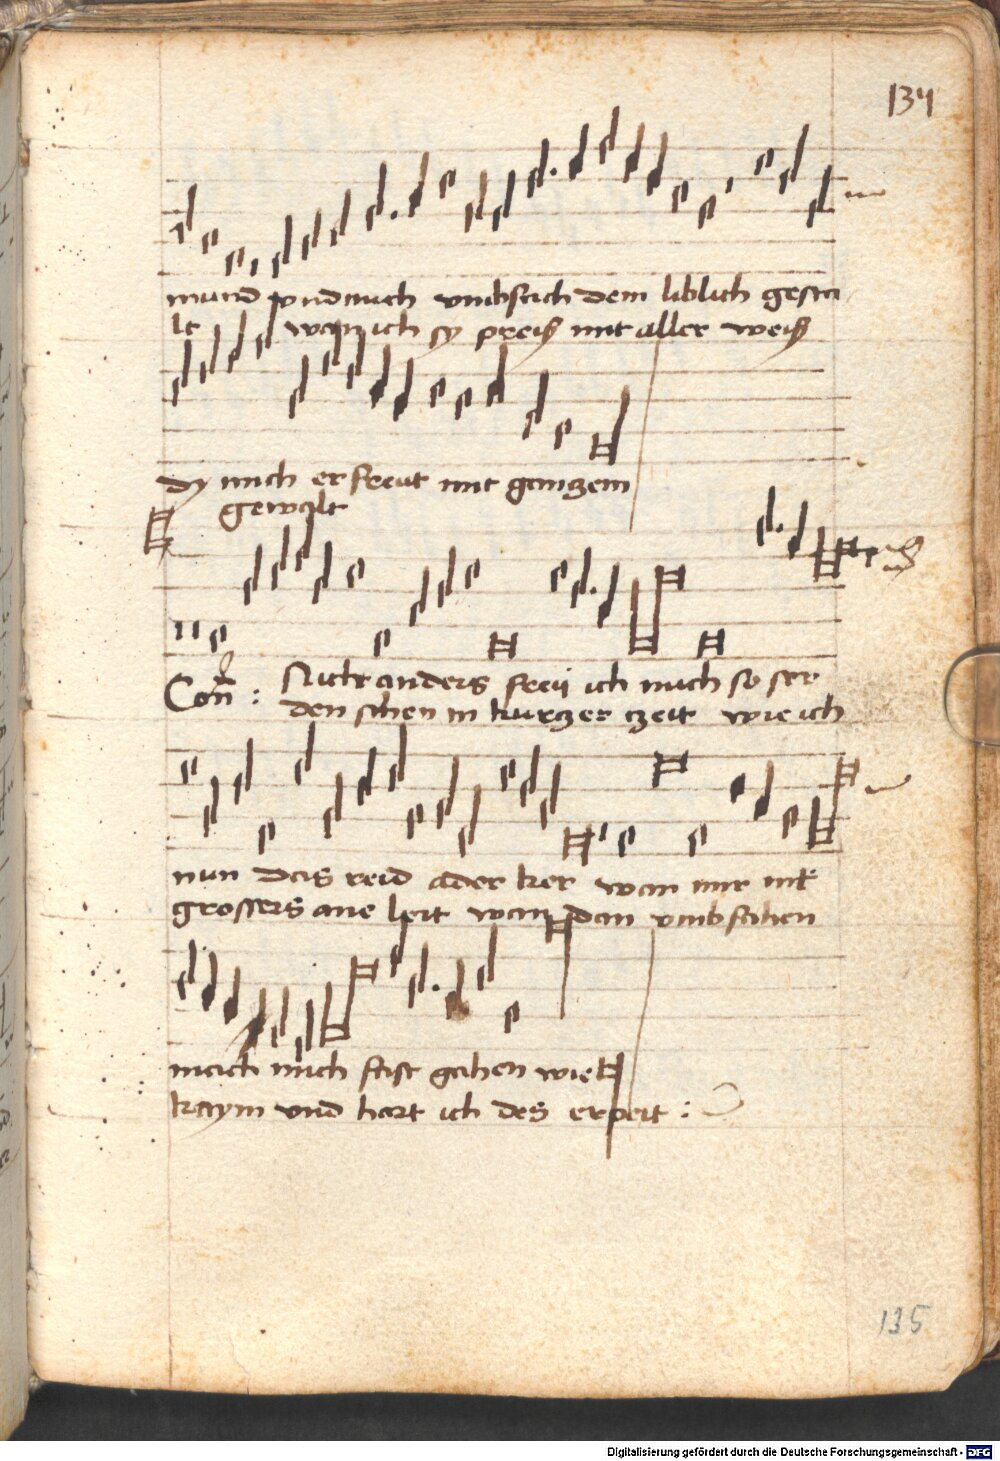 134
mund vnd mich vmbfach dem liblich gesta
lt wan ich sy preiß mit aller weiß
dy mich erfreut mit ganzem
gewalt
Con : Nicht anders freu ich mich so ser
den sehen in kurczer czeit wie ich
nun das reid ader ker wan mir nit
grossers ane leit wan dan vmbfahen
mach mich fast gahen wie
kaym vnd hart ich des erpeit :
135
Digitalisierung gefördert durch die Deutsche Forschungsgemeinschaft - DFG